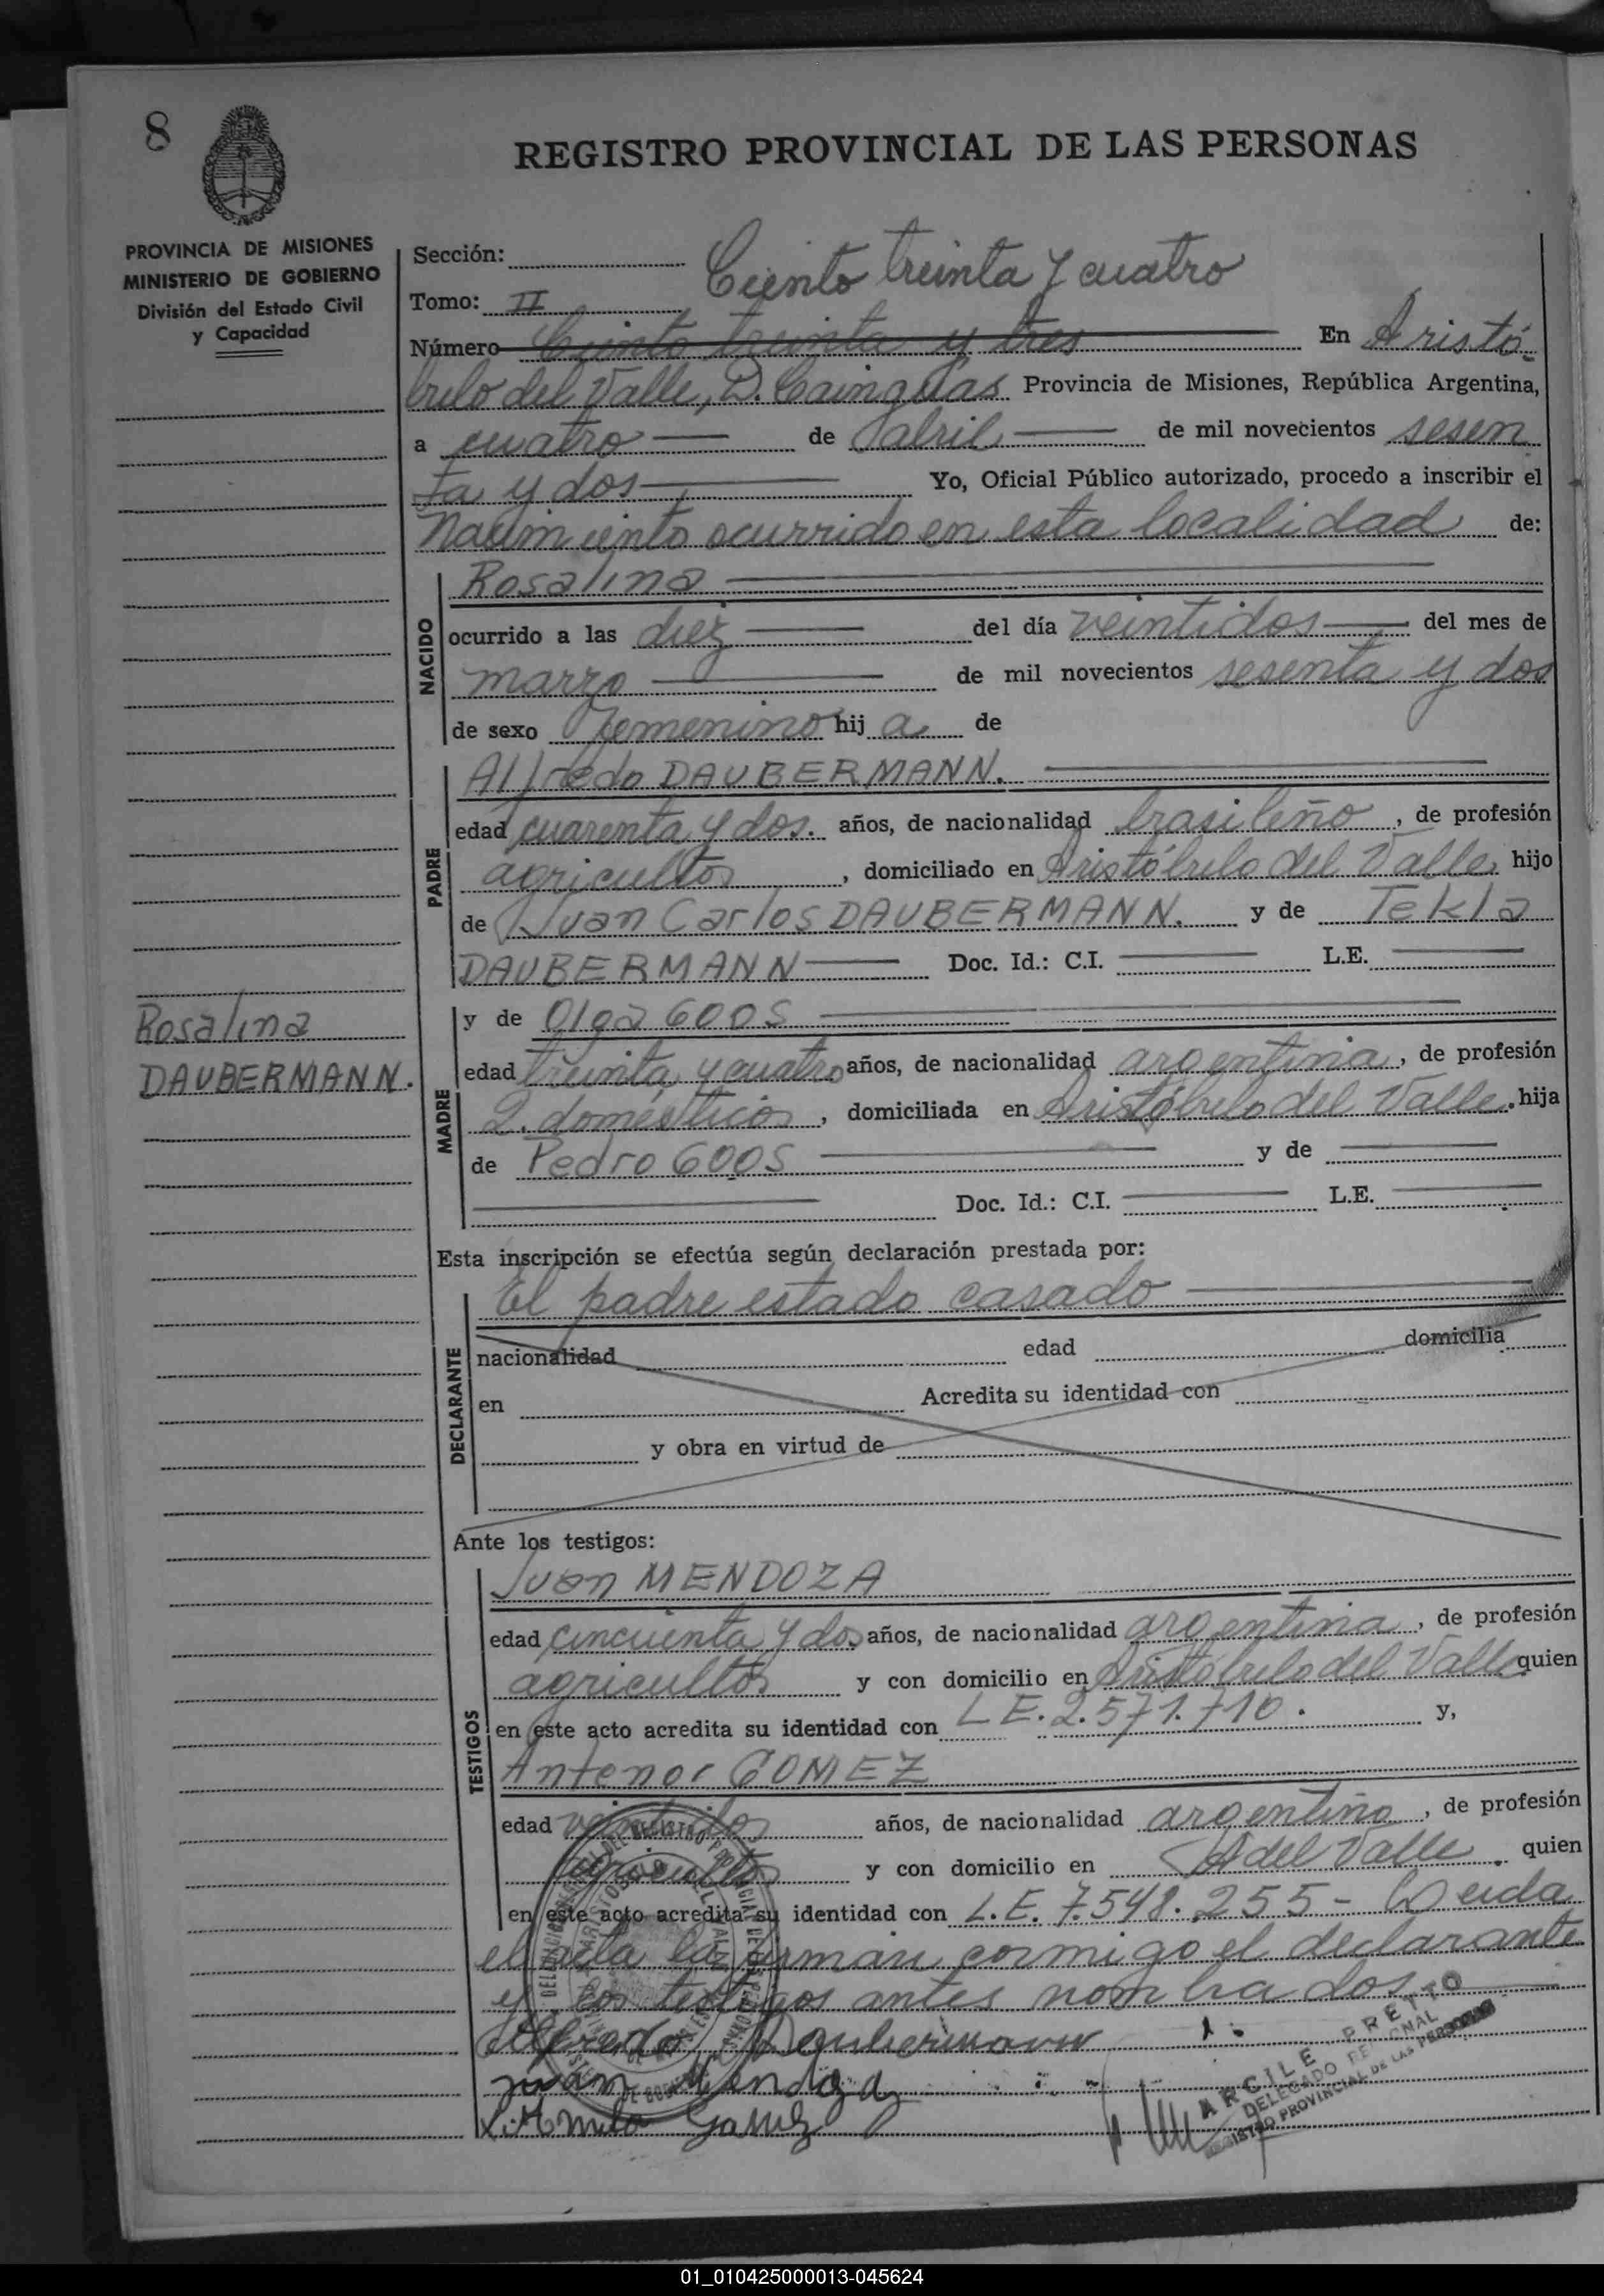 8
REGISTRO PROVINCIAL DE LAS PERSONAS
PROVINCIA DE MISIONES
MINISTERIO DE GOBIERNO
División del Estado Civil
y Capacidad
Sección:
Ciento treinta y cuatro
Tomo: II
Número Ciento treinta y tres En Aristó-
bulo del Valle, D. Cainguas Provincia de Misiones, República Argentina,
a cuatro de abril de mil novecientos sesen
ta y dos Yo, Oficial Público autorizado, procedo a inscribir el
Nacimiento ocurrido en esta localidad de:
NACIDO
Rosalina
ocurrido a las diez del día veintidos del mes de
marzo de mil novecientos sesenta y dos
de sexo Femenino hij a de
PADRE
Alfredo DAUBERMANN.
edad cuarenta y dos. años, de nacionalidad brasileño, de profesión
agricultor, domiciliado en Aristóbulo del Valle, hijo
de Juan Carlos DAUBERMANN. y de Tekla
DAUBERMANN Doc. Id.: C.I. L.E.
Rosalina
DAUBERMANN.
MADRE
y de Olga GOOS
edad treinta y cuatro años, de nacionalidad argentina, de profesión
Q. domésticos, domiciliada en Aristóbulo del Valle. hija
de Pedro GOOS y de
Doc. Id.: C.I. L.E.
Esta inscripción se efectúa según declaración prestada por:
DECLARANTE
El padre estado casado
nacionalidad edad domicilia
en Acredita su identidad con
y obra en virtud de
Ante los testigos:
TESTIGOS
Juan MENDOZA
edad cincuenta y dos años, de nacionalidad argentina, de profesión
agricultor y con domicilio en Aristóbulo del Valle quien
en este acto acredita su identidad con L E. 2.571.710. y,
Antenor GOMEZ
edad veintidos años, de nacionalidad argentino, de profesión
agricultor y con domicilio en A del Valle. quien
en este acto acredita su identidad con L.E. 7.548.255-Leida
el acta la firman conmigo el declarante
y los testigos antes nombrados
Alfredo Daubermann
juan Mendoza
ARCILE PRETTO
DELEGADO
REGISTRO PROVINCIAL DE LAS PERSONAS
01_010425000013-045624